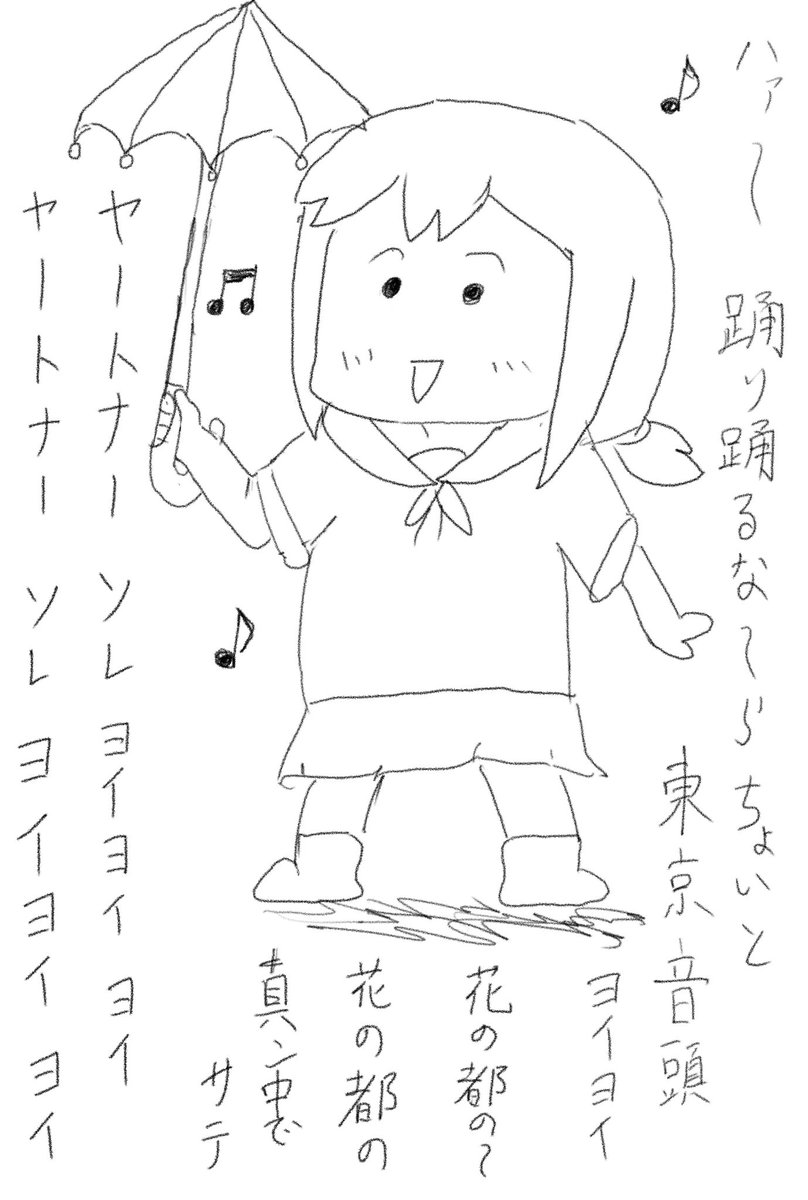 ハァ〜 踊り踊るな〜らちょいと
東京音頭
ヨイヨイ
花の都の〜
花の都の
真ン中で
サテ
ヤートナー ソレ ヨイヨイ ヨイ
ヤートナー ソレ ヨイヨイ ヨイ